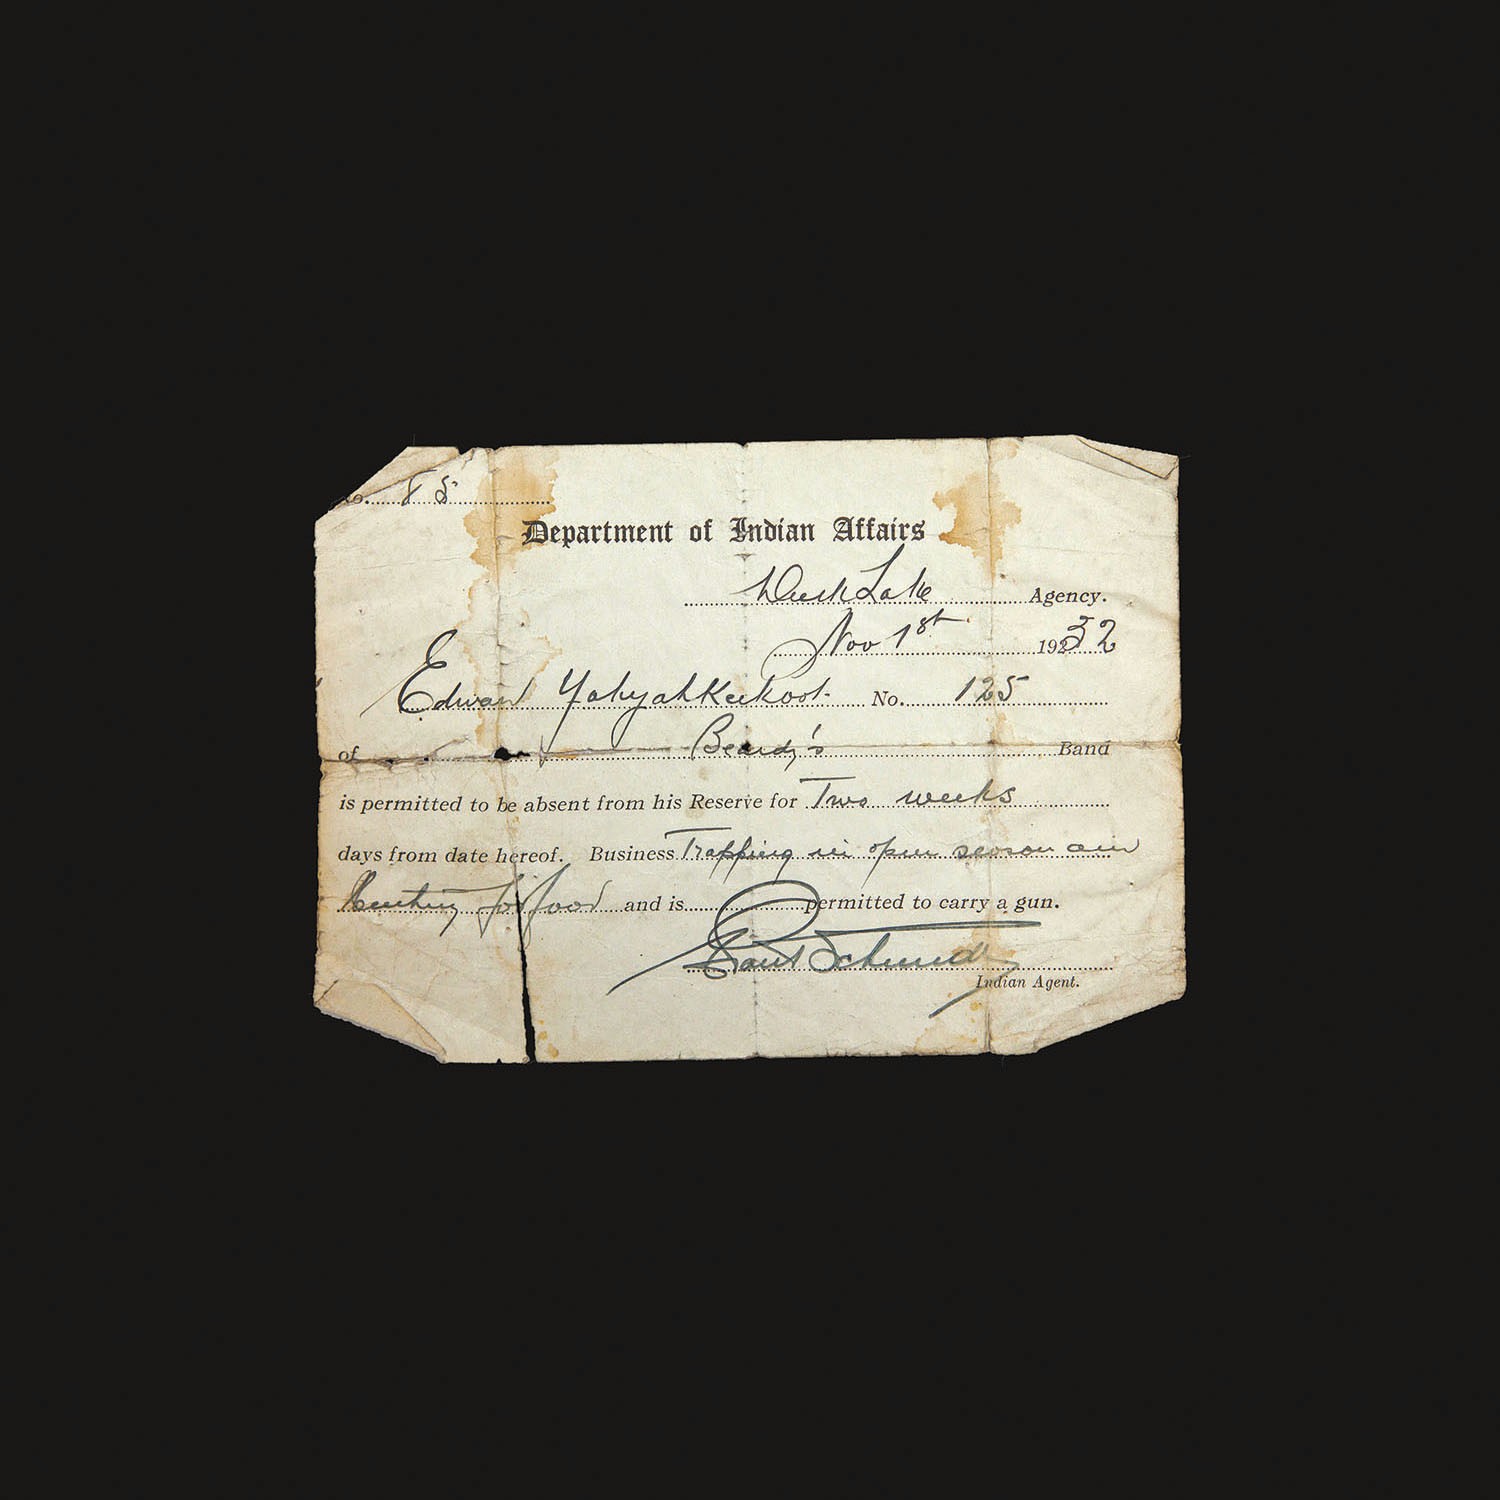 No. 85
Department of Indian Affairs
Duck Lake Agency.
Nov 1st 1932
Edward Yahyahkeekoot No. 125
of Beardy's Band
is permitted to be absent from his Reserve for Two weeks
days from date hereof. Business Trapping in open season and
Hunting for food and is permitted to carry a gun.
Schmidt
Indian Agent.